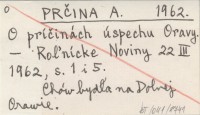 o PRČINA A. 1962.
O príčinách úspechu Oravy.
— Roľnícke Noviny 22 III
1962, s. 1 i 5.
Chów bydła na Dolnej
Orawie.